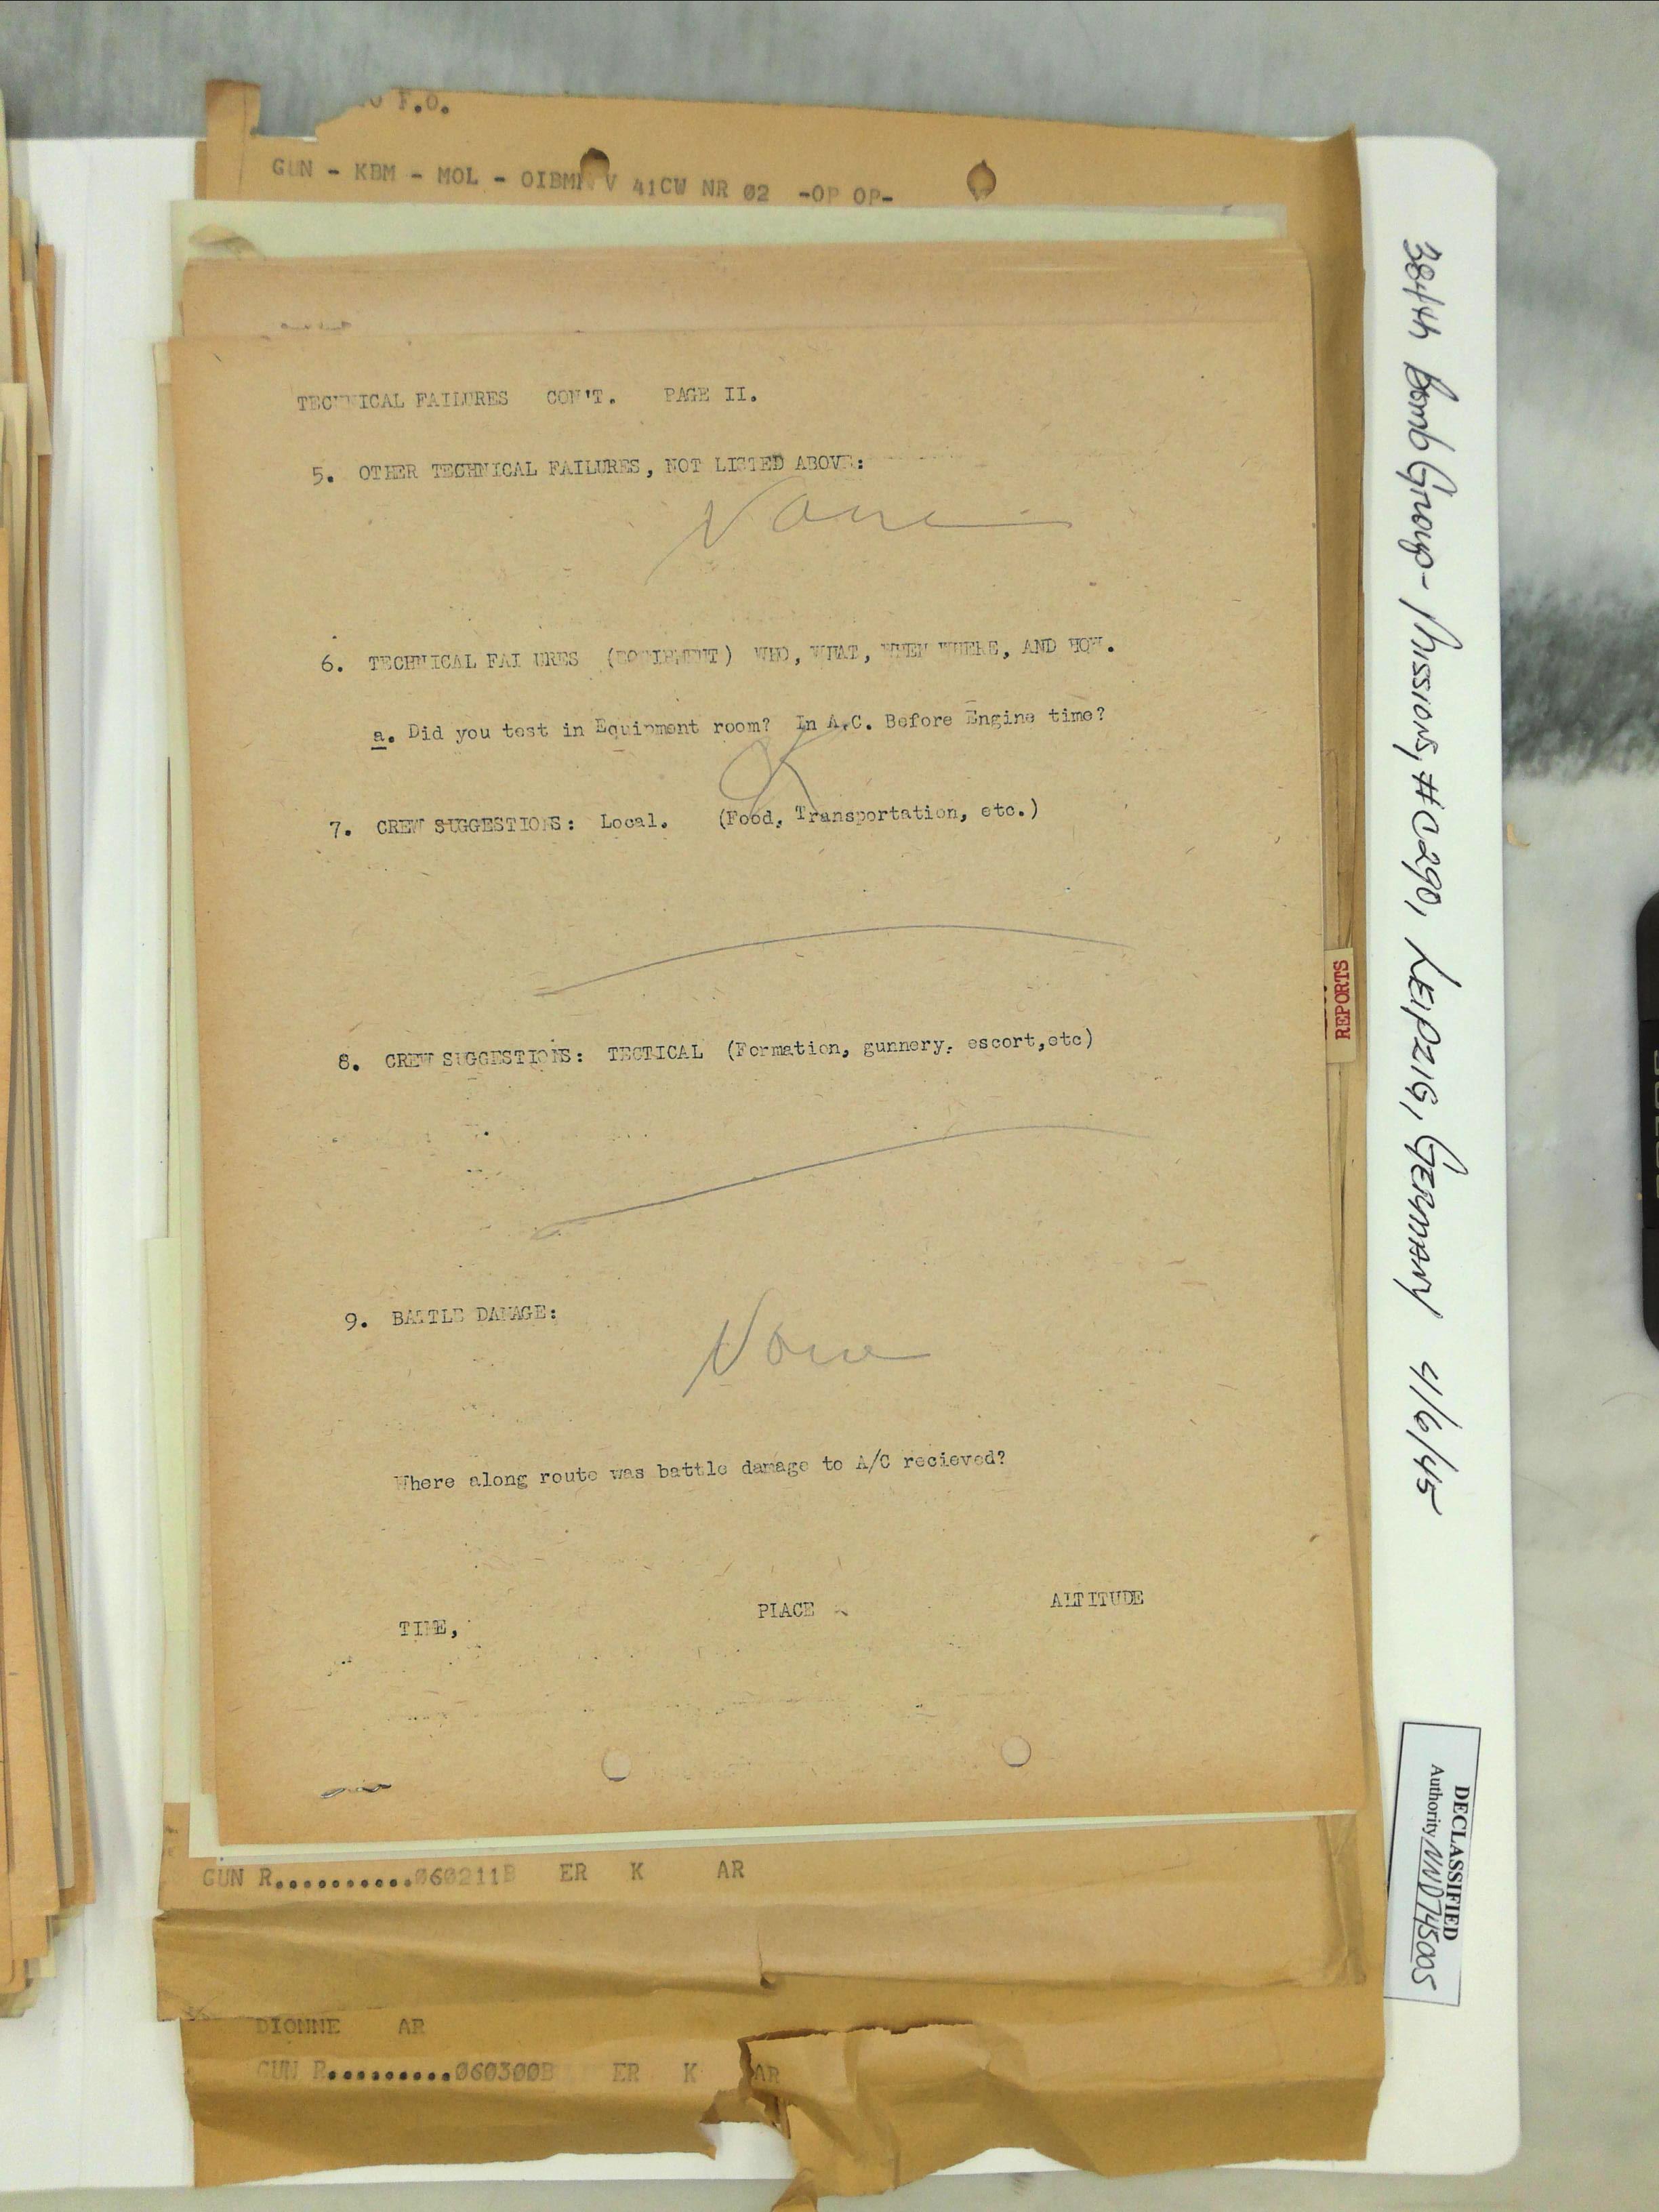 F.O.
GUN - KBM - MOL - OIBMN V 41CW NR 02 -OP OP-
TECHNICAL FAILURES CON'T. PAGE II.
5. OTHER TECHNICAL FAILURES, NOT LISTED ABOVE:
None
6. TECHNICAL FAI URES (EQUIPMENT) WHO, WHAT, WHEN WHERE, AND HOW.
a. Did you test in Equipment room? In A.C. Before Engine time?
OK
7. CREW SUGGESTIONS: Local. (Food, Transportation, etc.)
8. CREW SUGGESTIONS: TECTICAL (Formation, gunnery, escort,etc)
9. BATTLE DAMAGE:
None
Where along route was battle damage to A/C recieved?
TIME, PLACE ALTITUDE
GUN R..........060211B ER K AR
DIONNE AR
GUN R.........060300B ER K AR
REPORTS
384th Bomb Group - Missions, #C290, LEIPZIG, GERMANY 4/6/45
DECLASSIFIED
Authority NND745005